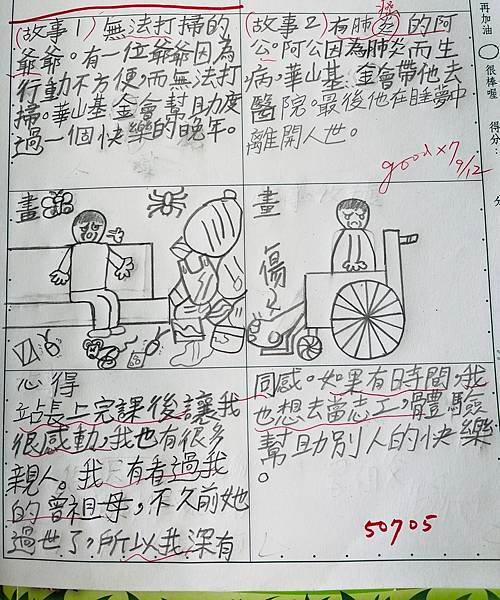 (故事1) 無法打掃的
爺爺。有一位爺爺因為
行動不方便,而無法打
掃。華山基金會幫助度
過一個快樂的晚年。
(故事2) 有肺炎的阿
公。阿公因為肺炎而生
病,華山基金會帶他去
醫院。最後他在睡夢中
離開人世。
good×7
9/12
畫
畫
傷
心得
站長上完課後讓我
很感動,我也有很多
親人。我有看過我
的曾祖母,不久前她
過世了,所以我深有
同感。如果有時間,我
也想去當志工,體驗
幫助別人的快樂
。
50705
再加油
很棒喔
得分